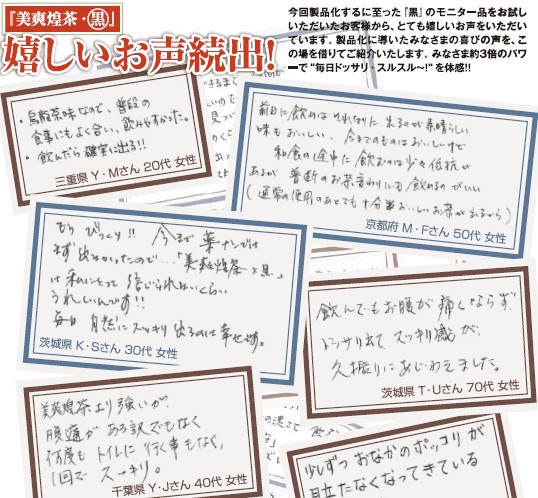 『美爽煌茶・黒』
嬉しいお声続出!
今回製品化するに至った『黒』のモニター品をお試し
いただいたお客様から、とても嬉しいお声をいただい
ています。製品化に導いたみなさまの喜びの声を、こ
の場を借りてご紹介いたします。みなさま約3倍のパワ
ーで“毎日ドッサリ・スルスル〜!”を体感!!
・烏龍茶味なので、普段の
食事にもよく合い、飲みやすかった。
・飲んだら確実に出る!!
三重県 Y・Mさん 20代 女性
前日に飲めば それなりに 出るのが素晴らしい
味も おいしい。今までのものは おいしいけど
和食の途中に 飲むのは少々抵抗が
あるが 普段のお茶変わりにも飲めるのがいい
(通常の使用のあとでも十分おいしいお茶が出るから)
京都府 M・Fさん 50代 女性
もう びっくり!! 今まで 薬ナシでは
まず出なかったので…「美爽煌茶・黒」
は私にとって 信じられないくらい
うれしいんです!!
毎日 自然に スッキリ 出るのは幸せです。
茨城県 K・Sさん 30代 女性
飲んでもお腹が 痛くならず、
ドッサリ出て スッキリ感が
久振りにあじわえました。
茨城県 T・Uさん 70代 女性
美爽煌茶より強いが、
腹痛がある訳でもなく
何度も トイレに 行く事もなく、
1回で スッキリ。
千葉県 Y・Jさん 40代 女性
少しずつ おなかのポッコリが
目立たなくなってきている